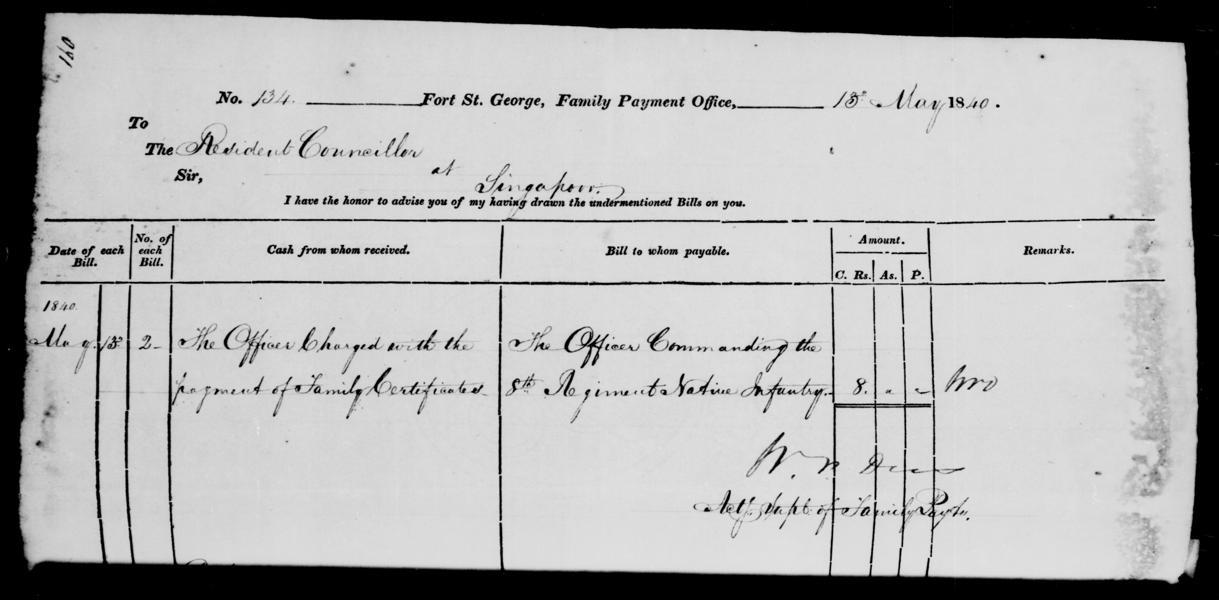 160
No. 134. Fort St. George, Family Payment Office, 13th May 1840.
To
The Resident Councillor
Sir, at Singapoor.
I have the honor to advise you of my having drawn the undermentioned Bills on you.
Date of each Bill. No. of each Bill. Cash from whom received. Bill to whom payable. Amount. Remarks.
C. Rs. As. P.
1840
May 13 2 The Officer Charged with the The Officer Commanding the
payment of Family Certificates 8th Regiment Native Infantry. 8. " "
W.
Actg. Supt. of Family Paymts.